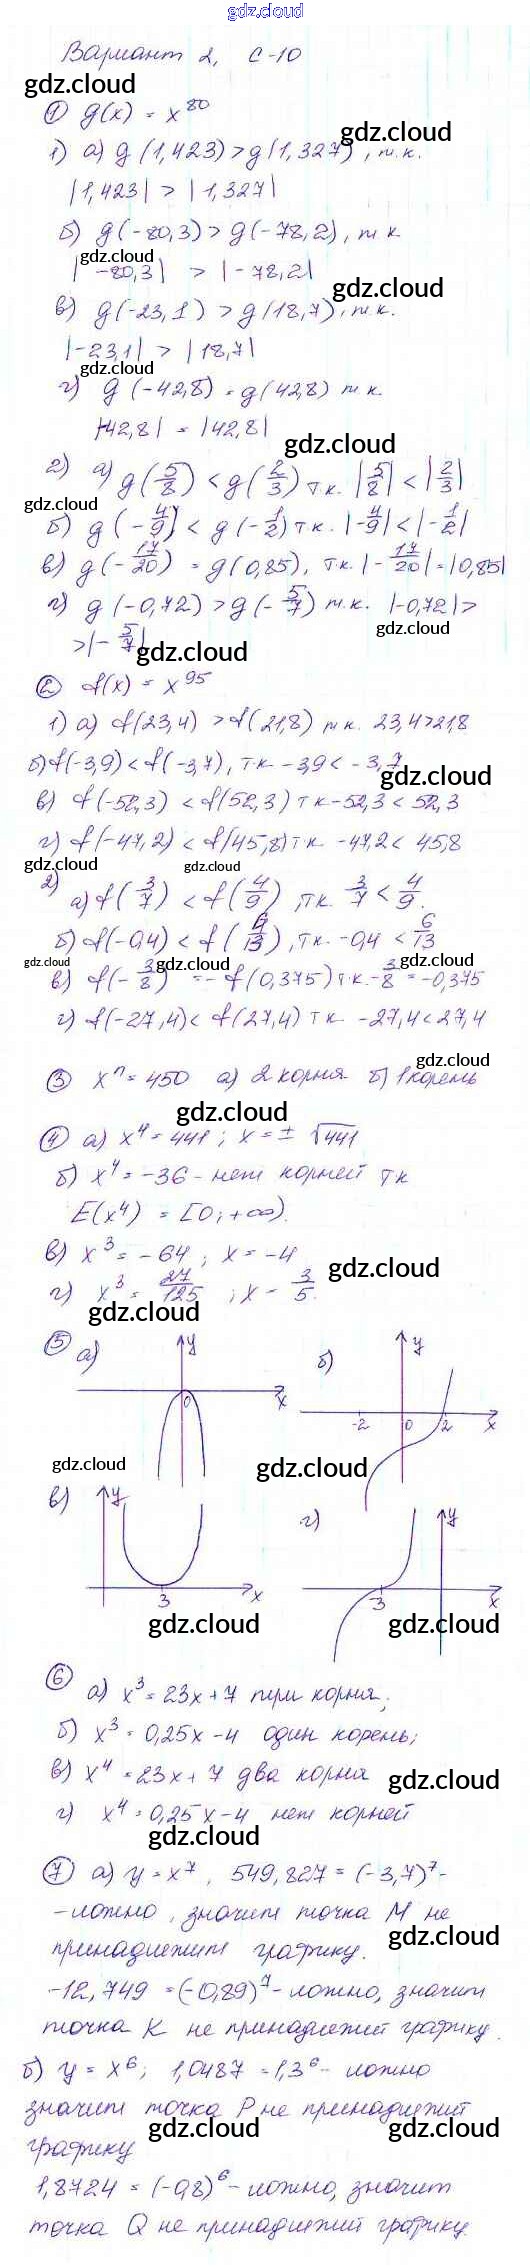 gdz.cloud
Вариант 2, С-10
gdz.cloud
① g(x) = x⁸⁰
gdz.cloud
1) а) g(1,423) > g(1,327), т.к.
|1,423| > |1,327|
б) g(-80,3) > g(-78,2), т.к.
gdz.cloud
|-80,3| > |-78,2|
gdz.cloud
в) g(-23,1) > g(18,7), т.к.
|-23,1| > |18,7|
gdz.cloud
г) g(-42,8) = g(42,8) т.к.
|-42,8| = |42,8|
gdz.cloud
2) а) g(5/8) < g(2/3) т.к. |5/8| < |2/3|
gdz.cloud
б) g(-4/9) < g(-1/2) т.к. |-4/9| < |-1/2|
в) g(-17/20) = g(0,85), т.к. |-17/20| = |0,85|
г) g(-0,72) > g(-5/7) т.к. |-0,72| >
gdz.cloud
> |-5/7|
gdz.cloud
② f(x) = x⁹⁵
1) а) f(23,4) > f(21,8) т.к. 23,4 > 21,8
б) f(-3,9) < f(-3,7), т.к -3,9 < -3,7
gdz.cloud
в) f(-52,3) < f(52,3) т к -52,3 < 52,3
г) f(-47,2) < f(45,8) т к -47,2 < 45,8
gdz.cloud gdz.cloud
2) а) f(3/7) < f(4/9), т.к. 3/7 < 4/9.
б) f(-0,4) < f(6/13), т.к -0,4 < 6/13
gdz.cloud gdz.cloud gdz.cloud
в) f(-3/8) = -f(0,375) т.к. -3/8 = -0,375
г) f(-27,4) < f(27,4) т к -27,4 < 27,4
gdz.cloud
③ xⁿ = 450 а) 2 корня б) 1 корень
gdz.cloud
④ а) x⁴ = 441; x = ± √441
б) x⁴ = -36 - нет корней т к
E(x⁴) = [0; +∞).
в) x³ = -64; x = -4
gdz.cloud
г) x³ = 27/125; x - 3/5.
gdz.cloud
⑤ а) y 0 x
б) y -2 0 2 x
gdz.cloud gdz.cloud
в) y 3 x
г) y -3 x
gdz.cloud gdz.cloud
⑥ а) x³ = 23x + 7 три корня;
б) x³ = 0,25x - 4 один корень;
в) x⁴ = 23x + 7 два корня
gdz.cloud
г) x⁴ = 0,25x - 4 нет корней
gdz.cloud
⑦ а) y = x⁷, 549,827 = (-3,7)⁷ -
- ложно, значит точка M не
gdz.cloud
принадлежит графику.
-12,749 = (-0,89)⁷ - ложно, значит
точка K не принадлежит графику.
gdz.cloud
б) y = x⁶; 1,0487 = 1,3⁶ - ложно
значит точка P не принадлежит
gdz.cloud gdz.cloud
графику
1,8724 = (-0,8)⁶ - ложно, значит
точка Q не принадлежит графику.